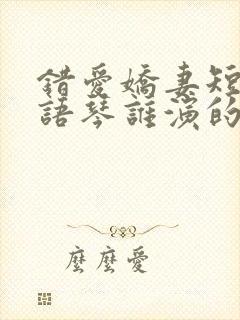 錯愛嬌妻短
語琴誰演的
麼麼愛